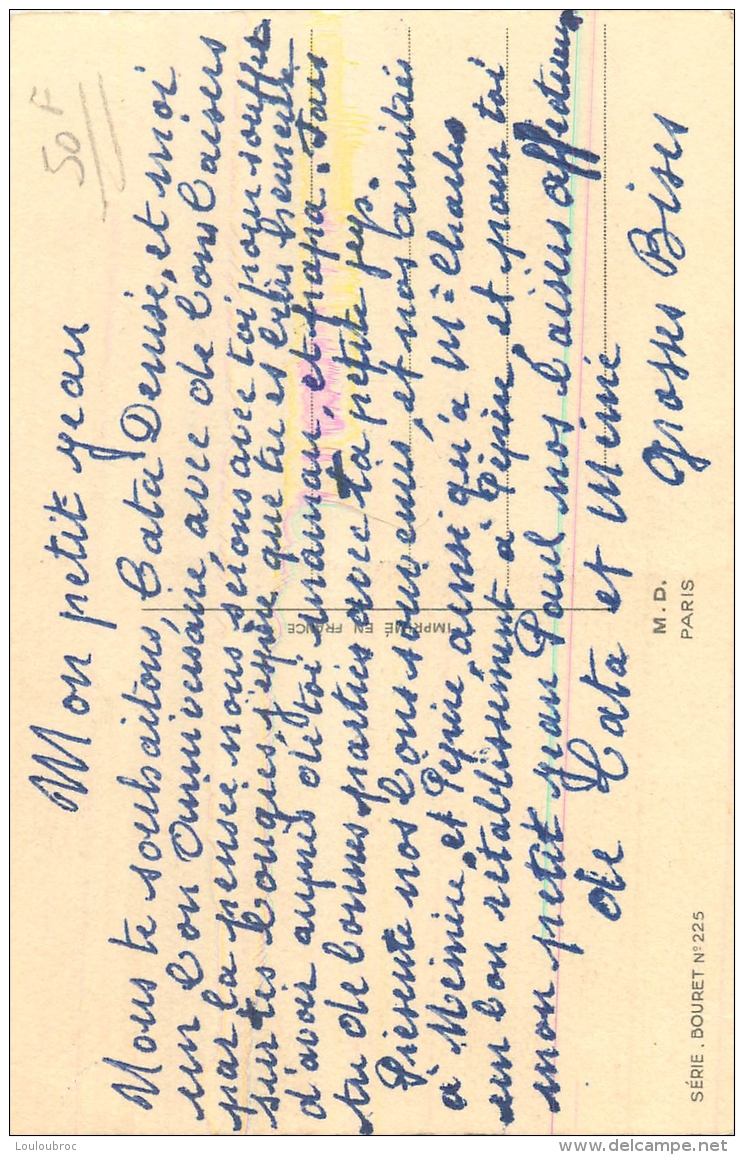 50 F
Mon petit Jean
Nous te souhaitons, Tata Denise, et moi
un bon Anniversaire, avec de bons baisers
par la pensée nous serons avec toi pour souffler
sur tes bougies j'espère que tu es très heureux
d'avoir auprès de toi maman, et papa. Fais
tu de bonnes parties avec ta petite jeep.
Présente nos bons souvenirs, et nos amitiés
à Mémère, et Pépère, ainsi qu'à Mme Charles
un bon rétablissement à Pépère et pour toi
mon petit Jean Paul nos baisers affectueux
de Tata et Mémé
Grosses Bises
IMPRIMÉ EN FRANCE
M. D.
PARIS
SÉRIE . BOURET Nº 225
Louloubroc
delcampe.net